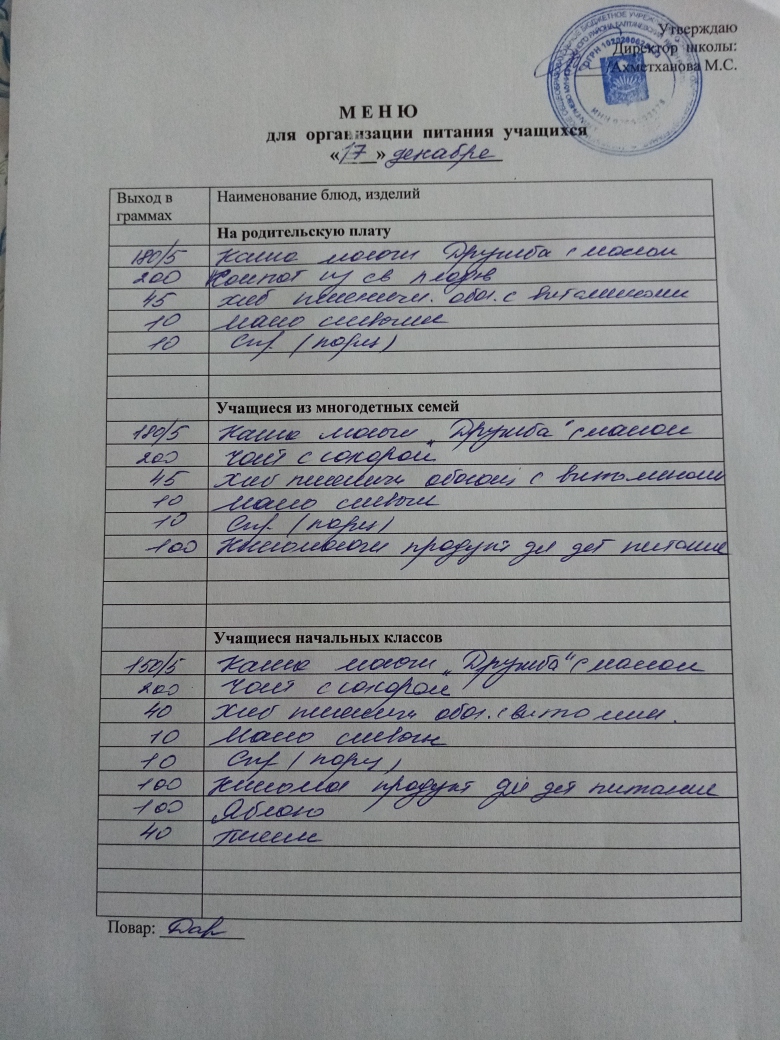 Утверждаю
Директор школы:
Ахметханова М.С.
М Е Н Ю
для организации питания учащихся
«17» декабре
Выход в граммах Наименование блюд, изделий
На родительскую плату
180/5 Каша молочн Дружба с маслом
200 Компот из св плодов
45 хлеб пшеничн. обог. с витаминами
10 масло сливочн
10 Сыр (порц)
Учащиеся из многодетных семей
180/5 Каша молочн "Дружба" с маслом
200 Чай с сахаром
45 Хлеб пшеничн обогащ с витаминами
10 масло сливочн
10 Сыр (порц)
100 Кисломолочн продукт для дет питание
Учащиеся начальных классов
150/5 Каша молочн "Дружба" с маслом
200 Чай с сахаром
40 Хлеб пшеничн обог. с витамин.
10 Масло сливочн
10 Сыр (порц)
100 Кисломол продукт для дет питание
100 Яблоко
40
Повар: